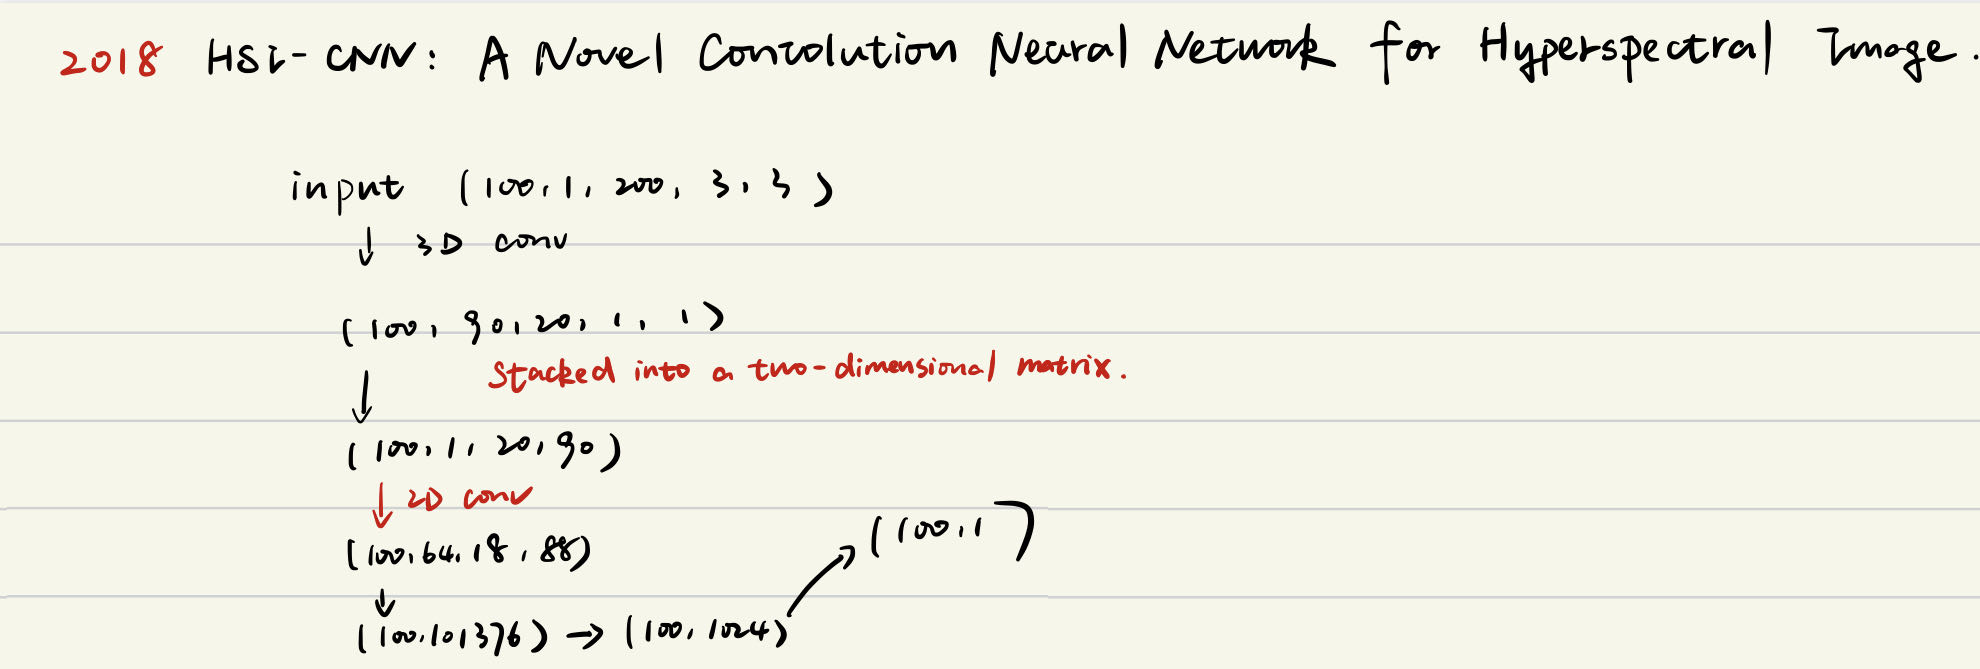 2018 HSI-CNN: A Novel Convolution Neural Network for Hyperspectral Image.
input (100, 1, 200, 3, 3)
↓ 3D conv
(100, 90, 20, 1, 1)
↓ Stacked into a two-dimensional matrix.
(100, 1, 20, 90)
↓ 2D conv
(100, 64, 18, 88)
↓
(100, 101376) → (100, 1024)
(100, 1)